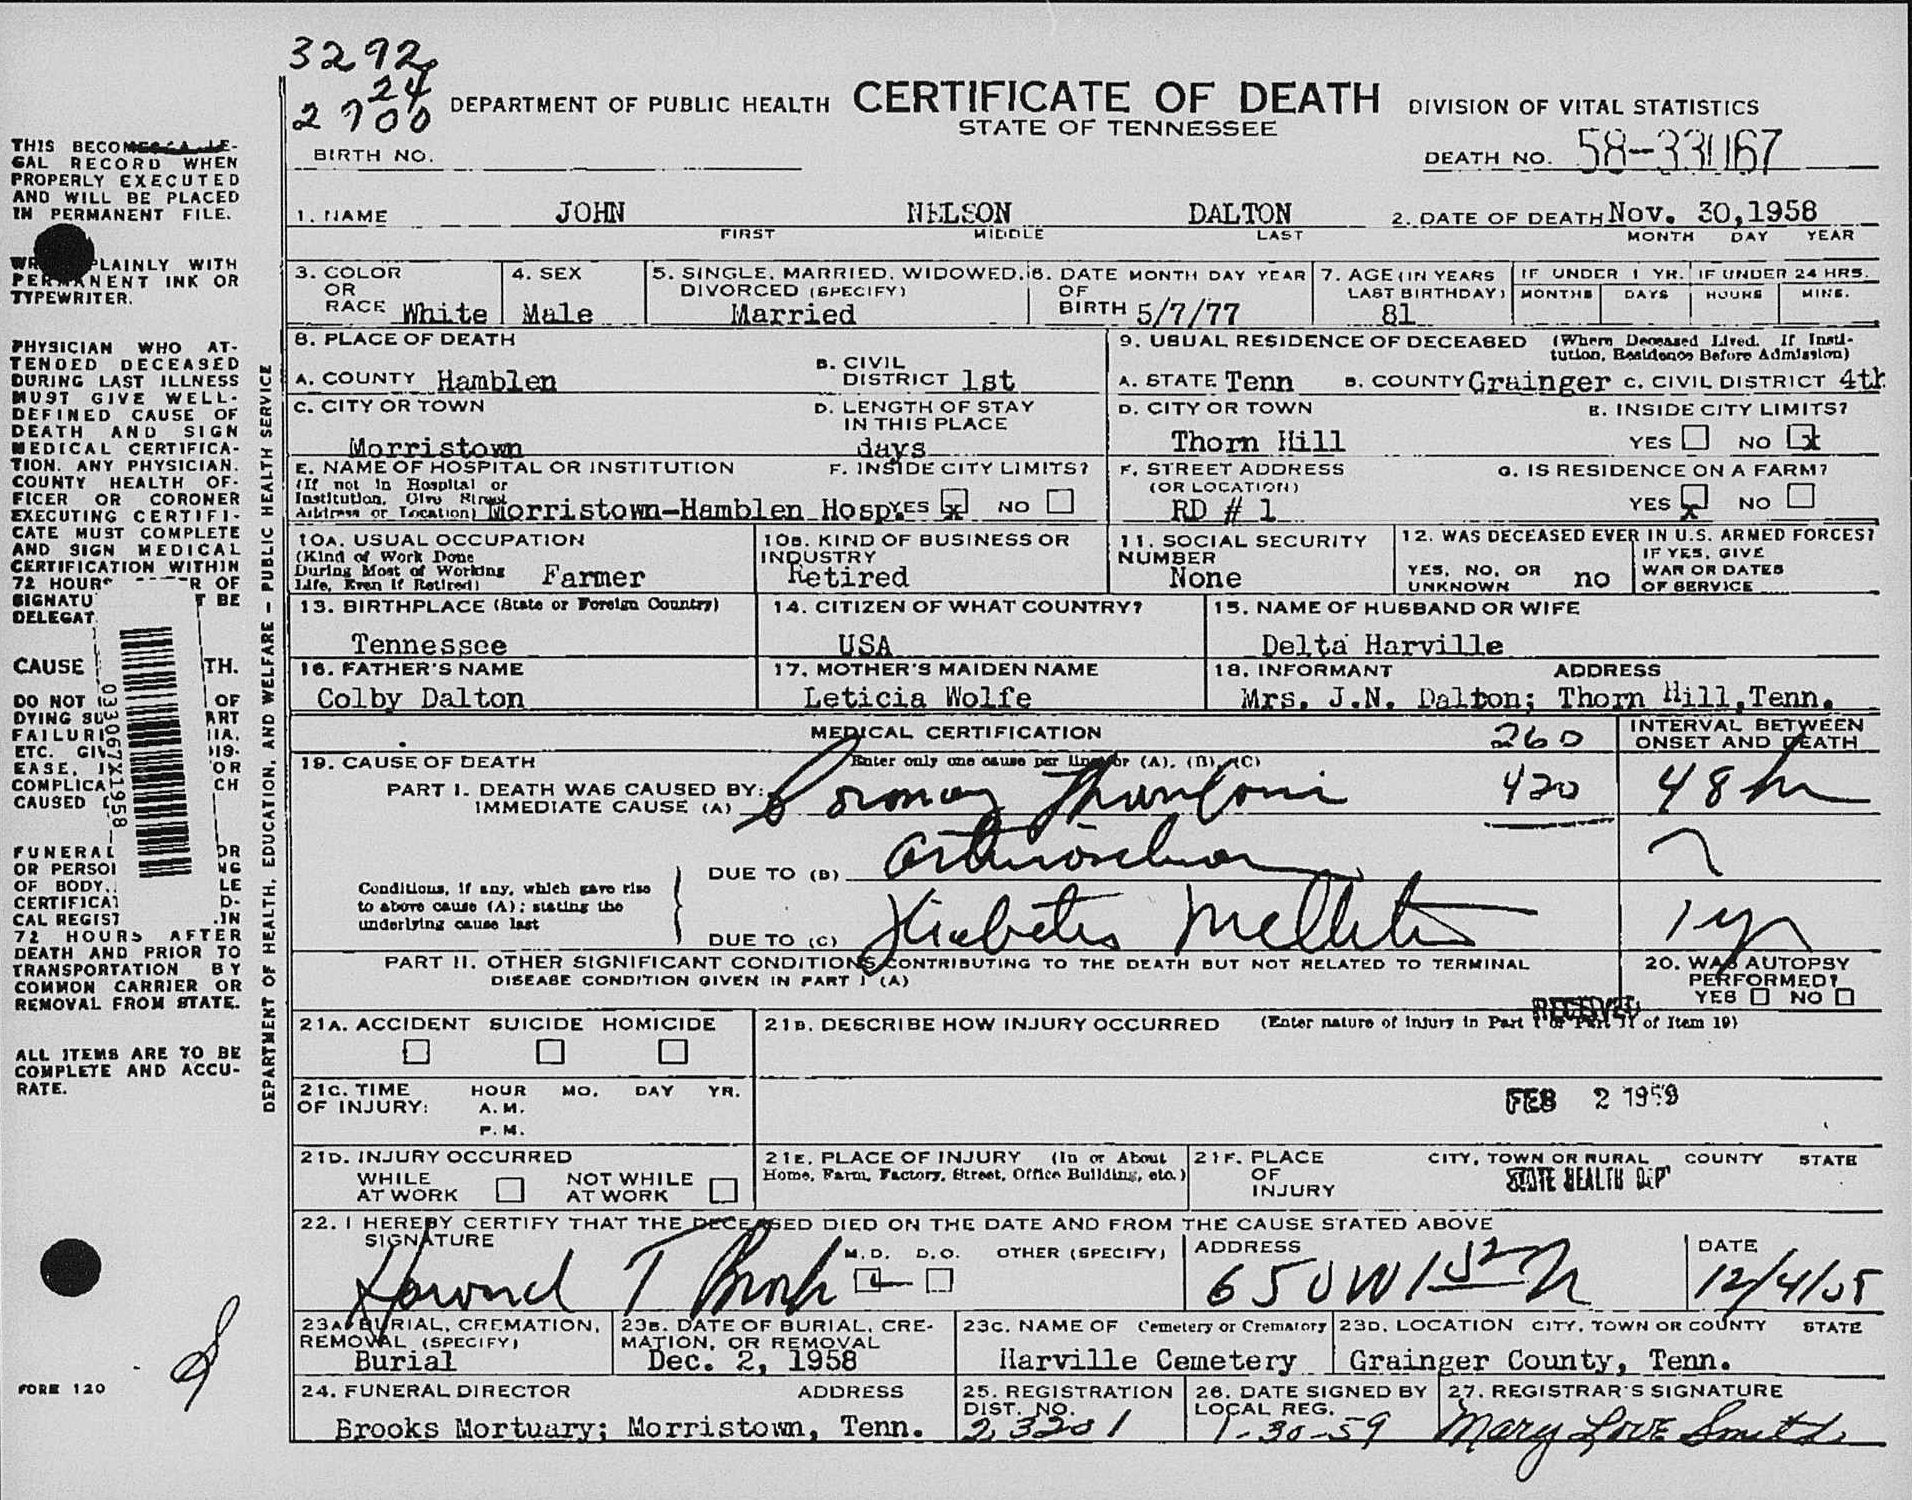 3292
24
2700
DEPARTMENT OF PUBLIC HEALTH CERTIFICATE OF DEATH DIVISION OF VITAL STATISTICS
STATE OF TENNESSEE
BIRTH NO.
DEATH NO. 58-33067
1. NAME JOHN NELSON DALTON 2. DATE OF DEATH Nov. 30,1958
FIRST MIDDLE LAST MONTH DAY YEAR
3. COLOR OR RACE White
4. SEX Male
5. SINGLE, MARRIED, WIDOWED, DIVORCED (SPECIFY) Married
6. DATE OF BIRTH MONTH DAY YEAR 5/7/77
7. AGE (IN YEARS LAST BIRTHDAY) 81
IF UNDER 1 YR. MONTHS DAYS
IF UNDER 24 HRS. HOURS MINS.
8. PLACE OF DEATH
A. COUNTY Hamblen
B. CIVIL DISTRICT 1st
C. CITY OR TOWN Morristown
D. LENGTH OF STAY IN THIS PLACE days
E. NAME OF HOSPITAL OR INSTITUTION
(If not in Hospital or
Institution, Give Street
Address or Location) Morristown-Hamblen Hosp.
F. INSIDE CITY LIMITS? YES x NO
9. USUAL RESIDENCE OF DECEASED (Where Deceased Lived. If Insti-
tution, Residence Before Admission)
A. STATE Tenn B. COUNTY Grainger C. CIVIL DISTRICT 4th
D. CITY OR TOWN Thorn Hill
E. INSIDE CITY LIMITS? YES NO x
F. STREET ADDRESS (OR LOCATION) RD # 1
G. IS RESIDENCE ON A FARM? YES x NO
10A. USUAL OCCUPATION
(Kind of Work Done
During Most of Working
Life, Even If Retired) Farmer
10B. KIND OF BUSINESS OR INDUSTRY Retired
11. SOCIAL SECURITY NUMBER None
12. WAS DECEASED EVER IN U.S. ARMED FORCES?
YES, NO, OR UNKNOWN no
IF YES, GIVE WAR OR DATES OF SERVICE
13. BIRTHPLACE (State or Foreign Country) Tennessee
14. CITIZEN OF WHAT COUNTRY? USA
15. NAME OF HUSBAND OR WIFE Delta Harville
16. FATHER'S NAME Colby Dalton
17. MOTHER'S MAIDEN NAME Leticia Wolfe
18. INFORMANT ADDRESS
Mrs. J.N. Dalton; Thorn Hill, Tenn.
MEDICAL CERTIFICATION 260
INTERVAL BETWEEN ONSET AND DEATH
19. CAUSE OF DEATH Enter only one cause per line for (A), (B), (C)
PART I. DEATH WAS CAUSED BY:
IMMEDIATE CAUSE (A) 420 48 hr
Conditions, if any, which gave rise
to above cause (A); stating the
underlying cause last
DUE TO (B) ?
DUE TO (C) Diabetes Mellitus 1 yr
PART II. OTHER SIGNIFICANT CONDITIONS CONTRIBUTING TO THE DEATH BUT NOT RELATED TO TERMINAL
DISEASE CONDITION GIVEN IN PART I (A)
20. WAS AUTOPSY PERFORMED? YES NO
RECEIVED
21A. ACCIDENT SUICIDE HOMICIDE
21B. DESCRIBE HOW INJURY OCCURRED (Enter nature of injury in Part I or Part II of Item 19)
21C. TIME OF INJURY: HOUR MO. DAY YR.
A.M.
P.M.
FEB 2 1959
21D. INJURY OCCURRED
WHILE AT WORK NOT WHILE AT WORK
21E. PLACE OF INJURY (In or About
Home, Farm, Factory, Street, Office Building, etc.)
21F. PLACE OF INJURY CITY, TOWN OR RURAL COUNTY STATE
STATE HEALTH DEP'
22. I HEREBY CERTIFY THAT THE DECEASED DIED ON THE DATE AND FROM THE CAUSE STATED ABOVE
SIGNATURE M.D. D.O. OTHER (SPECIFY)
Howard T
ADDRESS 650 W 1st N
DATE 12/4/58
23A. BURIAL, CREMATION, REMOVAL (SPECIFY) Burial
23B. DATE OF BURIAL, CRE-
MATION, OR REMOVAL Dec. 2, 1958
23C. NAME OF Cemetery or Crematory Harville Cemetery
23D. LOCATION CITY, TOWN OR COUNTY STATE
Grainger County, Tenn.
24. FUNERAL DIRECTOR ADDRESS
Brooks Mortuary; Morristown, Tenn.
25. REGISTRATION DIST. NO. 23201
26. DATE SIGNED BY LOCAL REG. 1-30-59
27. REGISTRAR'S SIGNATURE Mary Love Smith
THIS BECOMES A LE-
GAL RECORD WHEN
PROPERLY EXECUTED
AND WILL BE PLACED
IN PERMANENT FILE.
PLAINLY WITH
PERMANENT INK OR
TYPEWRITER.
PHYSICIAN WHO AT-
TENDED DECEASED
DURING LAST ILLNESS
MUST GIVE WELL-
DEFINED CAUSE OF
DEATH AND SIGN
MEDICAL CERTIFICA-
TION. ANY PHYSICIAN,
COUNTY HEALTH OF-
FICER OR CORONER
EXECUTING CERTIFI-
CATE MUST COMPLETE
AND SIGN MEDICAL
CERTIFICATION WITHIN
72 HOURS R OF
SIGNATU T BE
DELEGAT
CAUSE TH.
DO NOT OF
DYING SU ART
FAILURE IIA,
ETC. GIV HIS-
EASE, I OR
COMPLICA CH
CAUSED
FUNERAL OR
OR PERSO NG
OF BODY, LE
CERTIFICAT D-
CAL REGIST IN
72 HOURS AFTER
DEATH AND PRIOR TO
TRANSPORTATION BY
COMMON CARRIER OR
REMOVAL FROM STATE.
ALL ITEMS ARE TO BE
COMPLETE AND ACCU-
RATE.
033067X1958
DEPARTMENT OF HEALTH, EDUCATION, AND WELFARE - PUBLIC HEALTH SERVICE
FORM 120